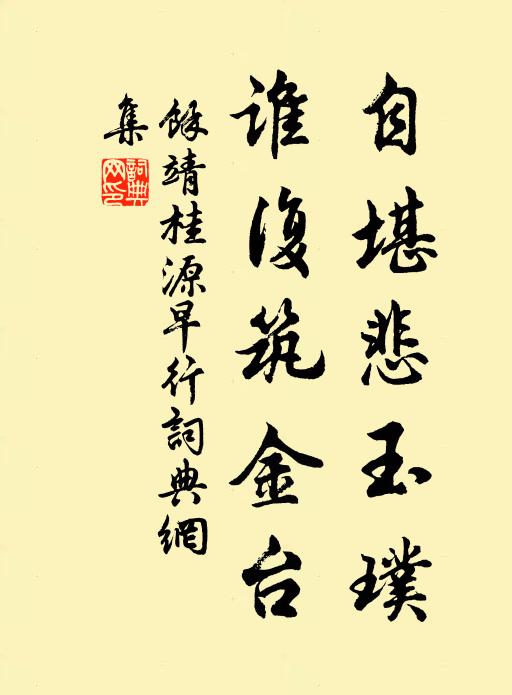 自堪悲玉璞
谁復筑金台
餘靖桂源早行詞典網
集
詞典
网印